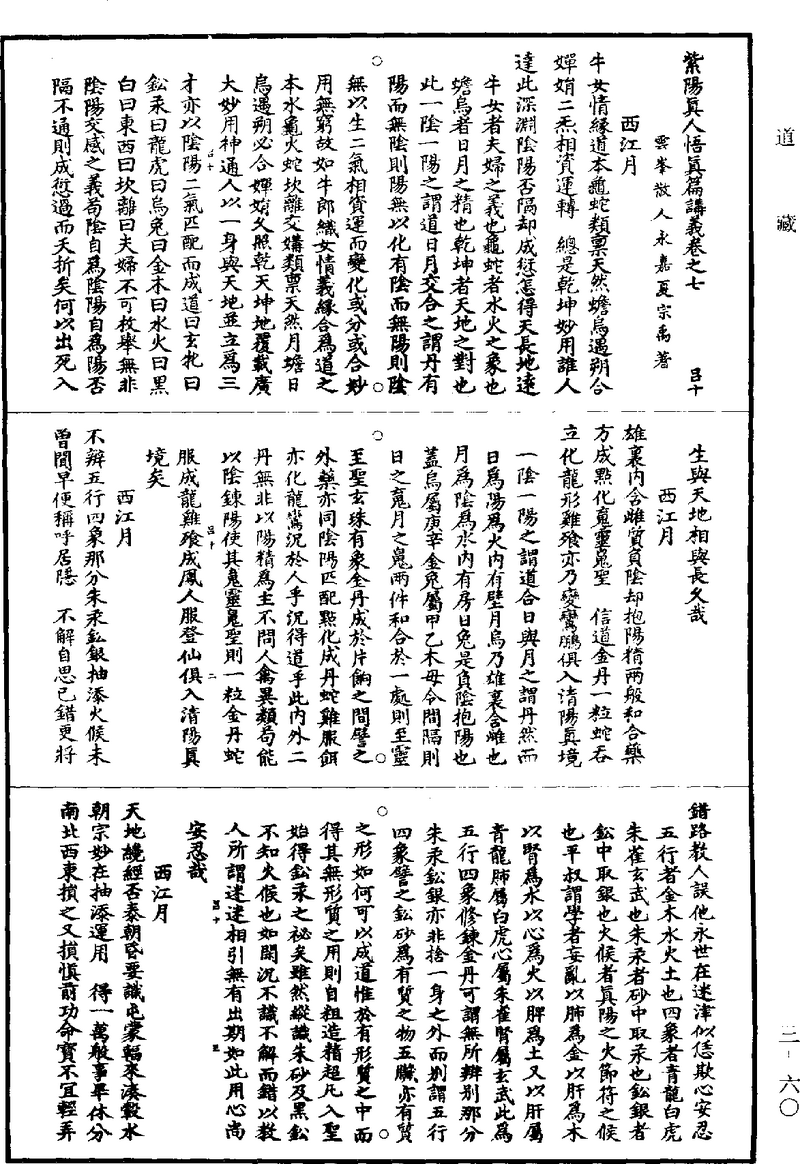 道藏
紫陽真人悟真篇講義卷之七
呂十
雲峯散人永嘉夏宗禹著
西江月
牛女情緣道本龜蛇類稟天然蟾烏遇朔合
嬋娟二炁相資運轉　總是乾坤妙用誰人
達此深淵陰陽否隔却成愆怎得天長地遠
牛女者夫婦之義也龜蛇者水火之象也
蟾烏者日月之精也乾坤者天地之對也
此一陰一陽之謂道日月交合之謂丹有
陽而無陰則陽無以化有陰而無陽則陰
無以生二氣相資運而變化或分或合妙
用無窮故如牛郎織女情義緣合為道之
本水龜火蛇坎離交媾類稟天然月蟾日
烏遇朔必合嬋娟久照乾天坤地覆載廣
大妙用神通人以一身與天地並立為三
才亦以陰陽二氣匹配而成道曰玄牝曰
鈆汞曰龍虎曰烏兔曰金木曰水火曰黑
白曰東西曰坎離曰夫婦不可枚舉無非
陰陽交感之義苟陰自為陰陽自為陽否
隔不通則成愆過而夭折矣何以出死入
生與天地相與長久哉
西江月
雄裏內含雌質負陰却抱陽精兩般和合藥
方成點化魂靈魄聖　信道金丹一粒蛇吞
立化龍形雞飡亦乃變鸞鵬俱入清陽真境
一陰一陽之謂道合日與月之謂丹然而
日為陽為火內有壁月烏乃雄裏含雌也
月為陰為水內有房日兔是負陰抱陽也
蓋烏屬庚辛金兔屬甲乙木毋令間隔則
日之魂月之魄兩件和合於一處則至靈
至聖玄珠有象金丹成於片餉之間譬之
外藥亦同陰陽匹配點化成丹蛇雞服餌
亦化龍鸞況於人乎況得道乎此內外二
丹無非以陽精為主不問人禽異類苟能
以陰鍊陽使其魂靈魄聖則一粒金丹蛇
服成龍雞飡成鳳人服登仙俱入清陽真
境矣
西江月
不辨五行四象那分朱汞鈆銀抽添火候未
曾聞早便稱呼居隱　不解自思已錯更將
錯路教人誤他永世在迷津似恁欺心安忍
五行者金木水火土也四象者青龍白虎
朱雀玄武也朱汞者砂中取汞也鈆銀者
鈆中取銀也火候者真陽之火節符之候
也平叔謂學者妄亂以肺為金以肝為木
以腎為水以心為火以脾為土又以肝屬
青龍肺屬白虎心屬朱雀腎屬玄武此為
五行四象修鍊金丹可謂無所辨別那分
朱汞鈆銀亦非捨一身之外而別謂五行
四象譬之鈆砂為有質之物五臟亦有質
之形如何可以成道惟於有形質之中而
得其無形質之用則自粗造精超凡入聖
始得鈆汞之祕矣雖然縱識朱砂及黑鈆
不知火候也如閑況不識不解而錯以教
人所謂迷迷相引無有出期如此用心尚
安忍哉
西江月
天地纔經否泰朝昏要識屯蒙輻來湊轂水
朝宗妙在抽添運用　得一萬般事畢休分
南北西東損之又損慎前功命寶不宜輕弄
三-六〇